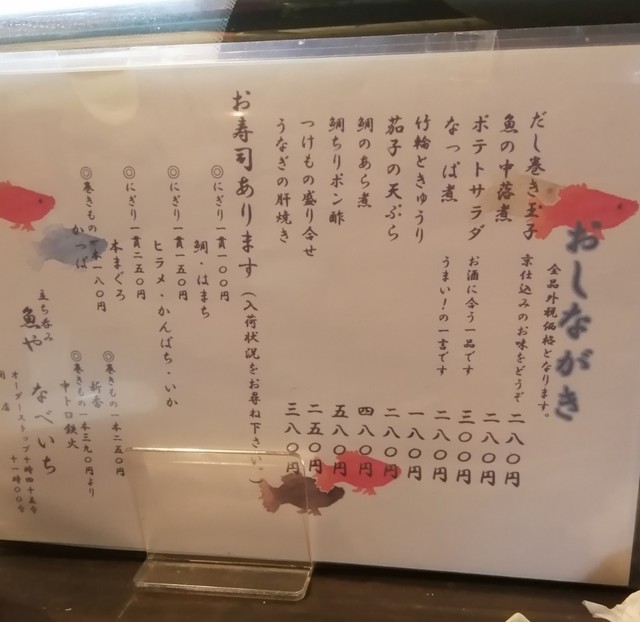 おしながき
全品外税価格となります。
だし巻き玉子 京仕込みのお味をどうぞ 二八〇円
魚の中落煮 二八〇円
ポテトサラダ お酒に合う一品です 三〇〇円
なっぱ煮 うまい!の一言です 二八〇円
竹輪ときゅうり 一八〇円
茄子の天ぷら 二八〇円
鯛のあら煮 四八〇円
鯛ちりポン酢 五八〇円
つけもの盛り合せ 二五〇円
うなぎの肝焼き 三八〇円
お寿司あります(入荷状況をお尋ね下さい。)
◎にぎり一貫一〇〇円
鯛・はまち
◎にぎり一貫一五〇円
ヒラメ・かんぱち・いか
◎にぎり一貫二五〇円
本まぐろ
◎巻きもの一本一八〇円
かっぱ
◎巻きもの一本二五〇円
新香
◎巻きもの一本三九〇円より
中トロ鉄火
立ち呑み
魚や なべいち
オーダーストップ十時四十五分
店 十一時〇〇分